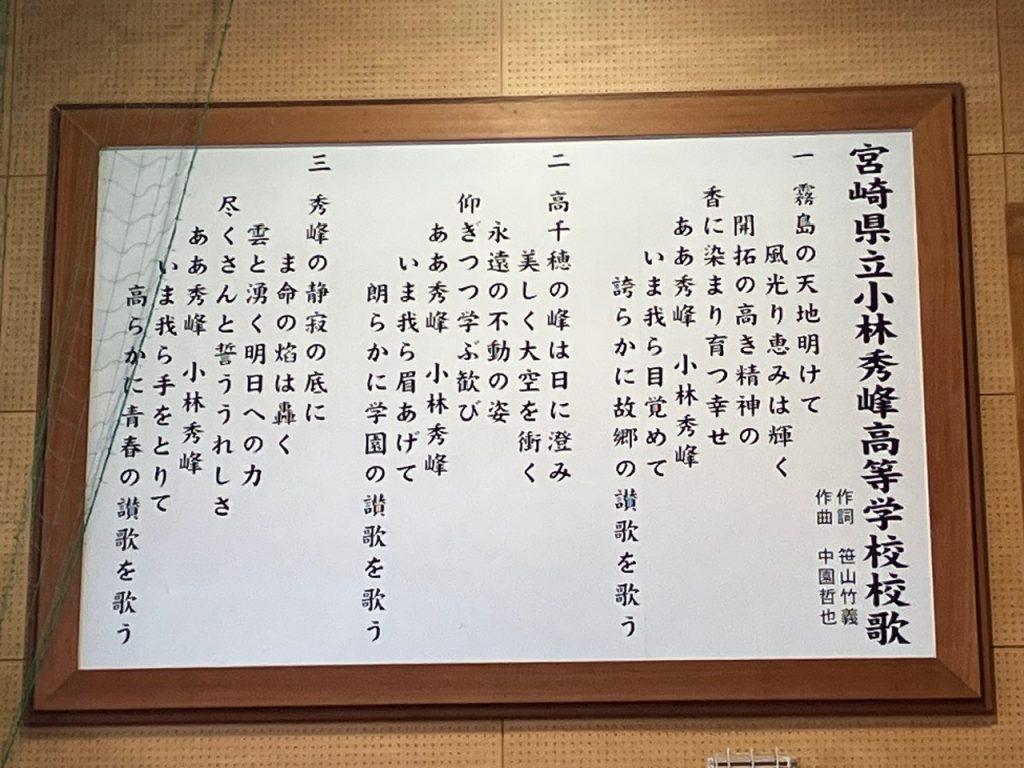 宮崎県立小林秀峰高等学校校歌
作詞 笹山竹義
作曲 中園哲也
一 霧島の天地明けて
風光り恵みは輝く
開拓の高き精神の
香に染まり育つ幸せ
ああ秀峰 小林秀峰
いま我ら目覚めて
誇らかに故郷の讃歌を歌う
二 高千穂の峰は日に澄み
美しく大空を衝く
永遠の不動の姿
仰ぎつつ学ぶ歓び
ああ秀峰 小林秀峰
いま我ら眉あげて
朗らかに学園の讃歌を歌う
三 秀峰の静寂の底に
ま命の焰は轟く
雲と湧く明日への力
尽くさんと誓ううれしさ
ああ秀峰 小林秀峰
いま我ら手をとりて
高らかに青春の讃歌を歌う